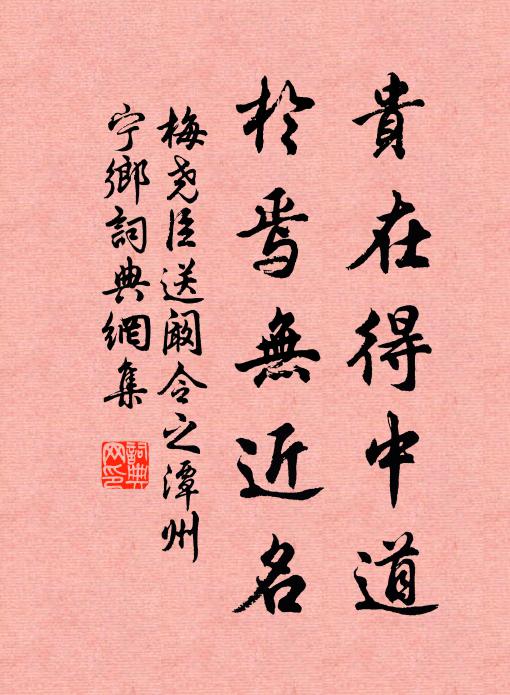 貴在得中道
於焉無近名
梅堯臣送阚令之潭州
宁鄉詞典網集
詞典网印